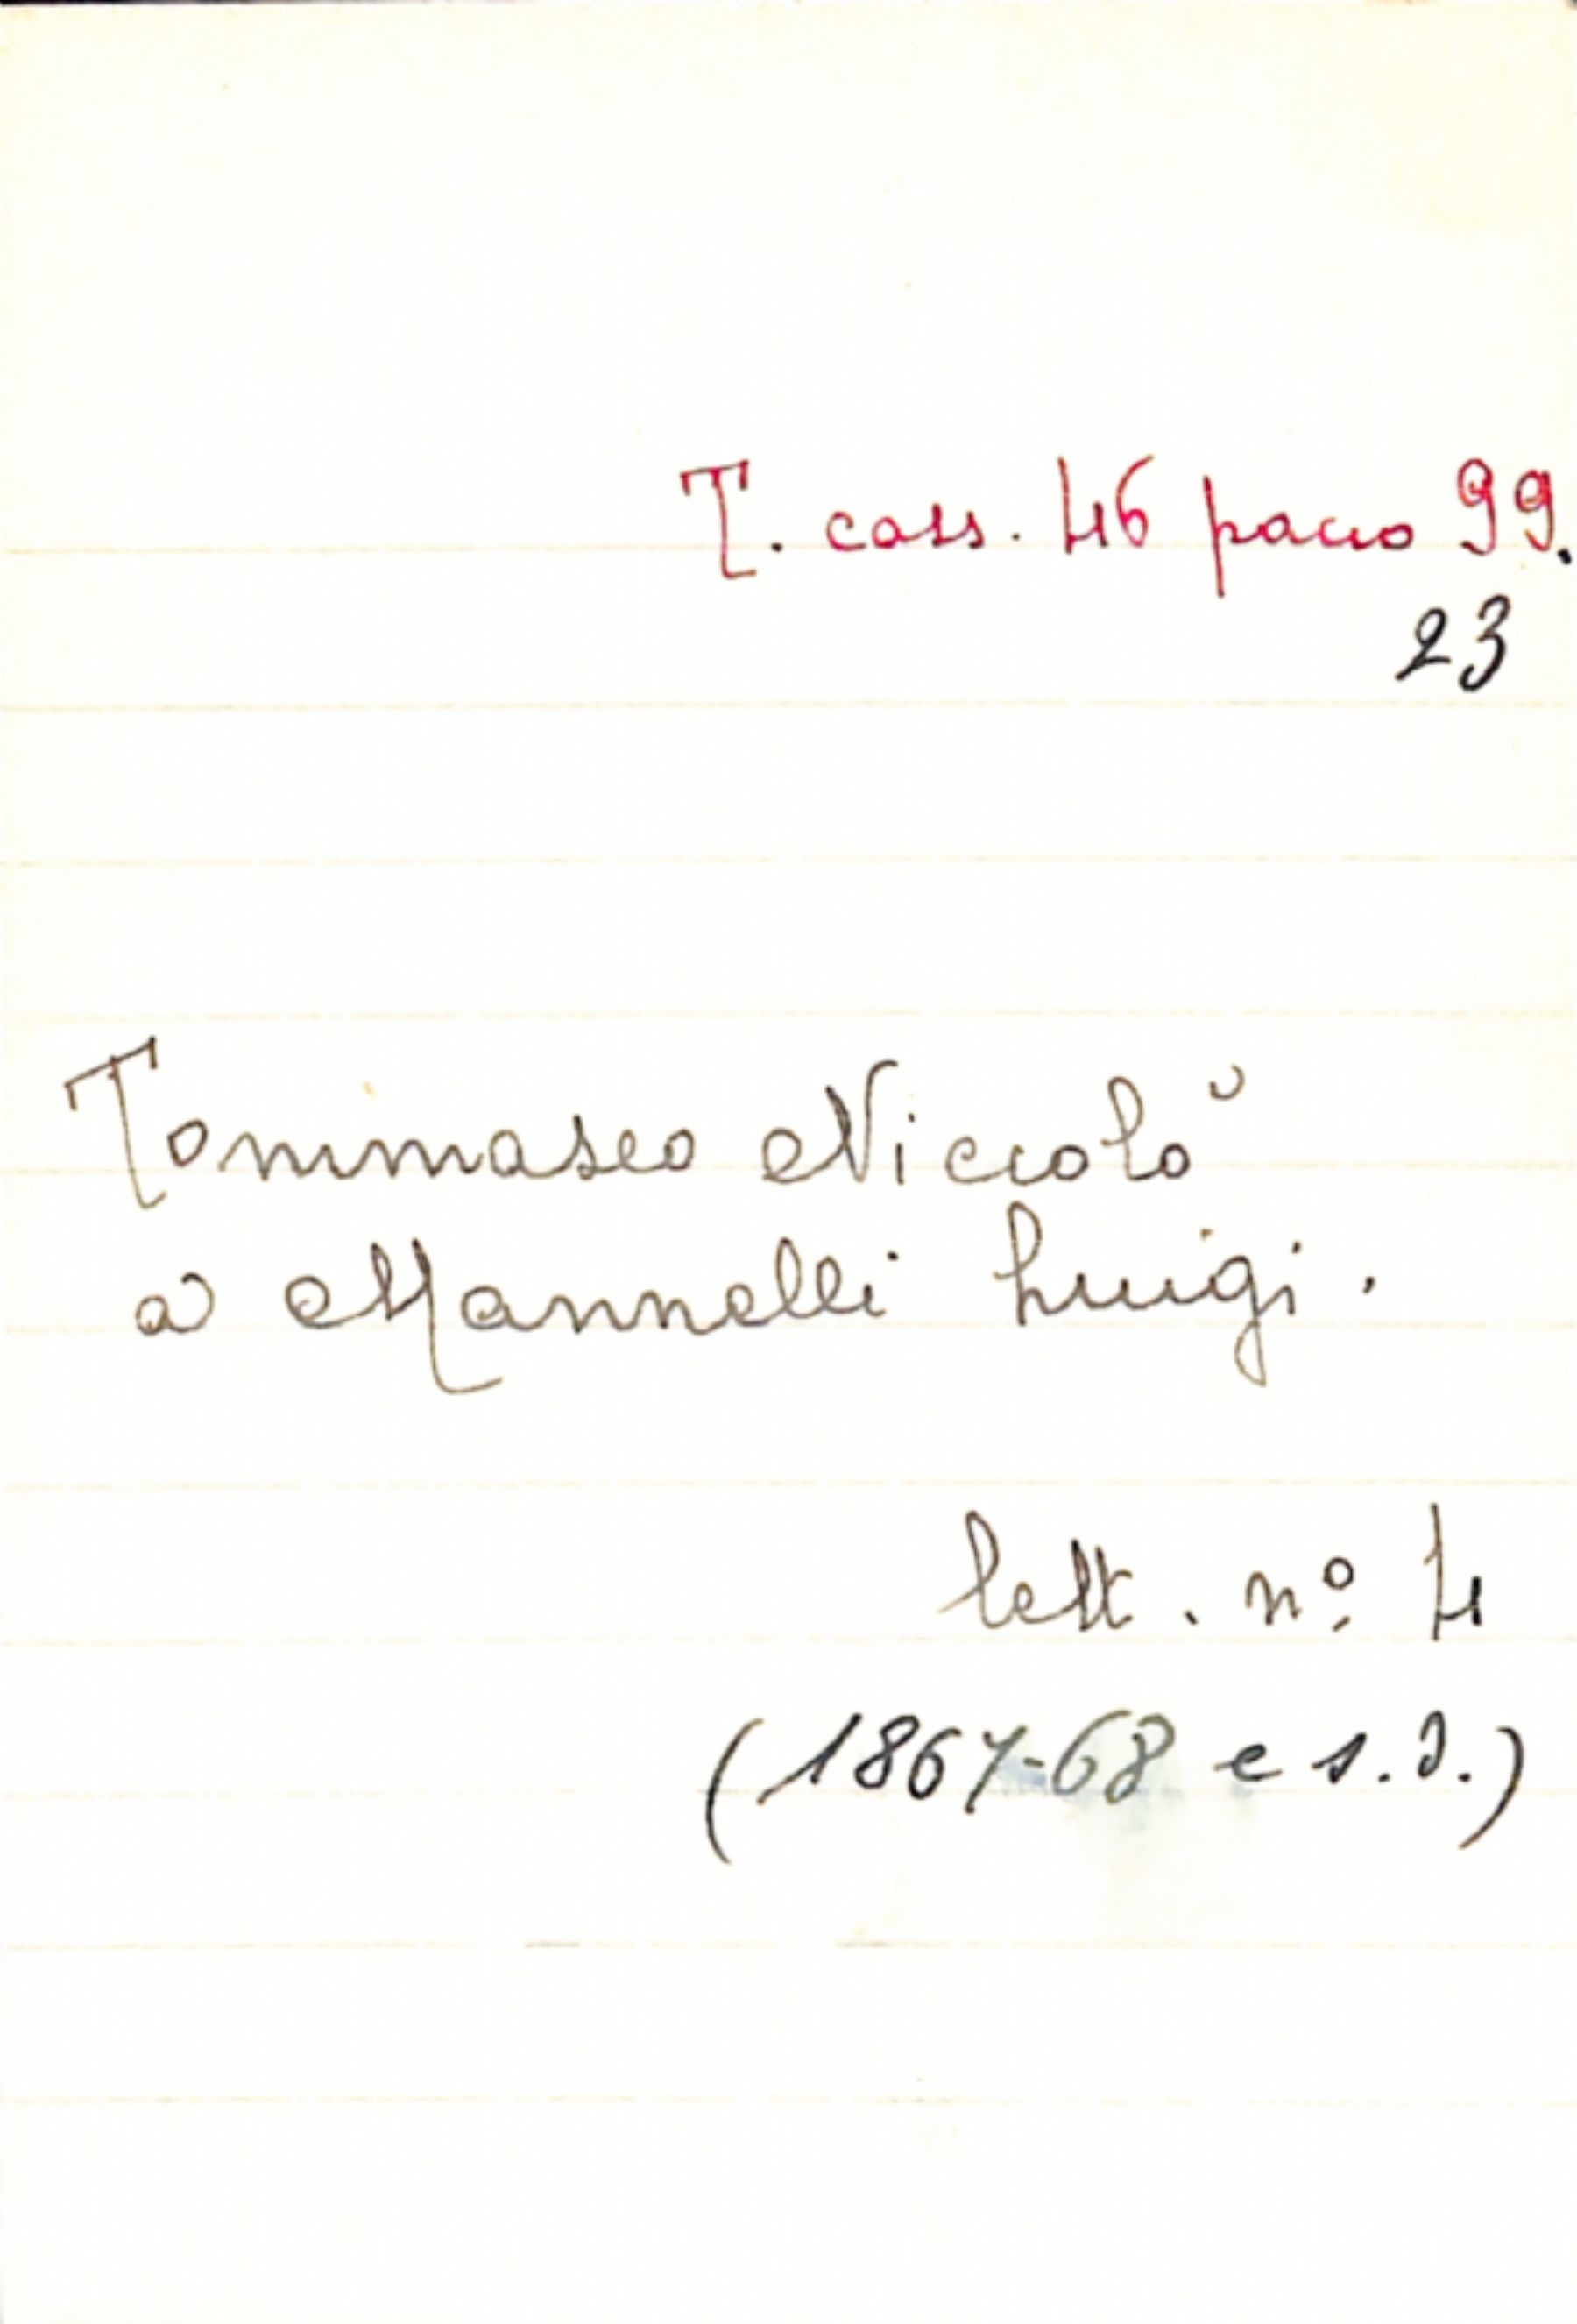 T. cass. 46 pacco 99.
23
Tommaseo Niccolò
a Mannelli Luigi.
lett. nº 4
(1867-68 e s.d.)